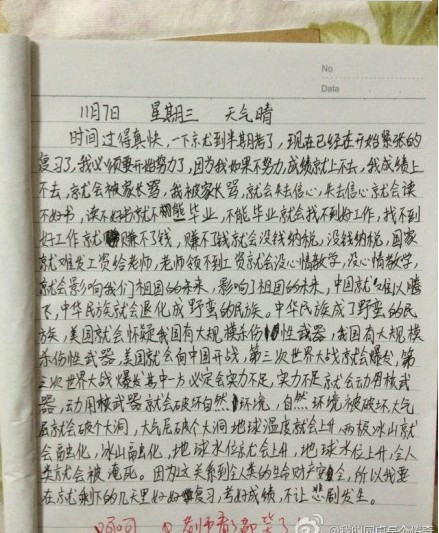 No
Data
11月7日 星期三 天气晴
时间过得真快,一下就到半期考了,现在已经在开始紧张的
复习了,我必须要开始努力了,因为我如果不努力,成绩就上不去,我成绩上
不去,就会被家长骂,我被家长骂,就会失去信心,失去信心就会读
不好书,读不好书就不能毕业,不能毕业就会找不到好工作,找不到
好工作就赚不了钱,赚不了钱就会没钱纳税,没钱纳税,国家
就难发工资给老师,老师领不到工资就会没心情教学,没心情教学,
就会影响我们祖国的未来,影响了祖国的未来,中国就难以腾
飞,中华民族就会退化成野蛮的民族,中华民族成了野蛮的民
族,美国就会怀疑我国有大规模杀伤性武器,我国有大规模
杀伤性武器,美国就会向中国开战,第三次世界大战就会爆发,第
三次世界大战爆发其中一方必定会实力不足,实力不足就会动用核武
器,动用核武器就会破坏自然环境,自然环境被破坏,大气
层就会破个大洞,大气层破个大洞地球温度就会上升,两极冰山就
会融化,冰山融化,地球水位就会上升,地球水位上升,全人
类就会被淹死。因为这关系到全人类的生命财产安全,所以我要
在就剩下的几天里好好复习,考好成绩,不让悲剧发生。
老师看了都笑了